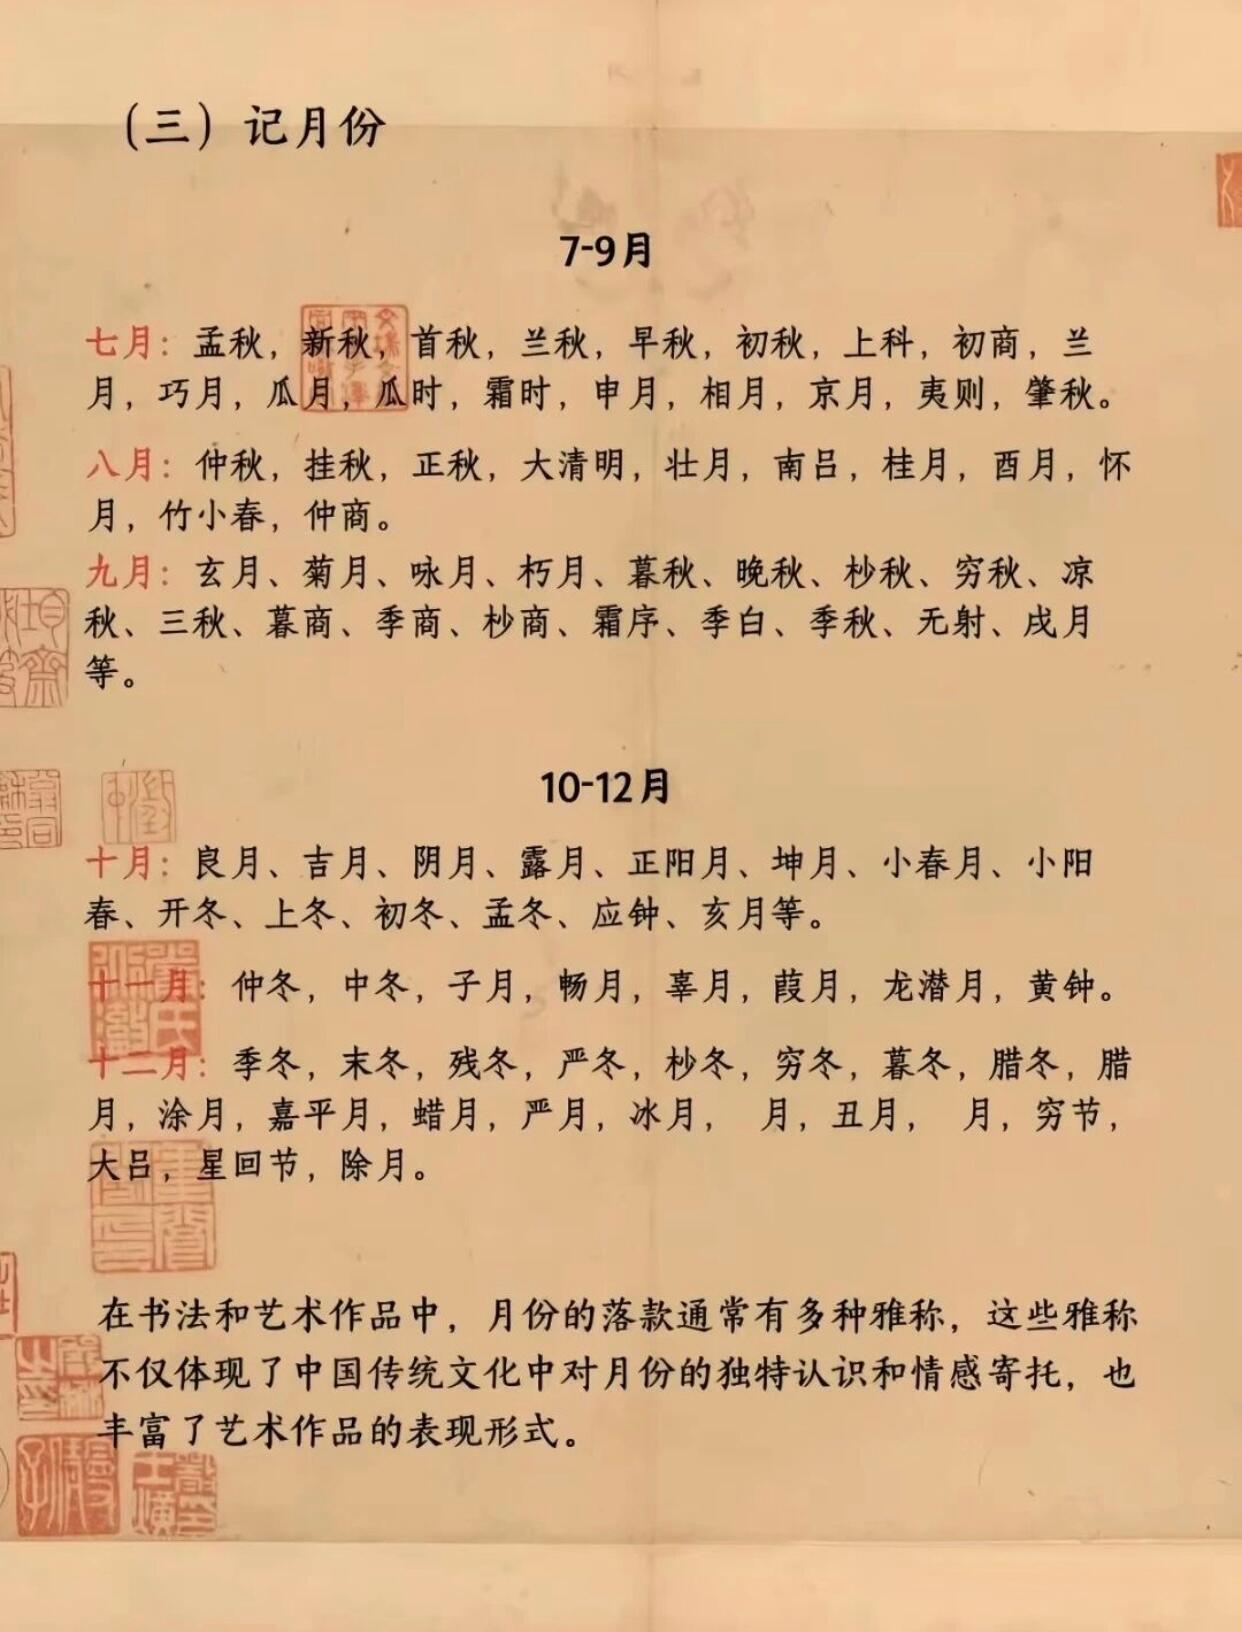 （三）记月份
7-9月
七月：孟秋，新秋，首秋，兰秋，早秋，初秋，上科，初商，兰
月，巧月，瓜月，瓜时，霜时，申月，相月，京月，夷则，肇秋。
八月：仲秋，挂秋，正秋，大清明，壮月，南吕，桂月，酉月，怀
月，竹小春，仲商。
九月：玄月、菊月、咏月、朽月、暮秋、晚秋、杪秋、穷秋、凉
秋、三秋、暮商、季商、杪商、霜序、季白、季秋、无射、戌月
等。
10-12月
十月：良月、吉月、阴月、露月、正阳月、坤月、小春月、小阳
春、开冬、上冬、初冬、孟冬、应钟、亥月等。
十一月：仲冬，中冬，子月，畅月，辜月，葭月，龙潜月，黄钟。
十二月：季冬，末冬，残冬，严冬，杪冬，穷冬，暮冬，腊冬，腊
月，涂月，嘉平月，蜡月，严月，冰月， 月，丑月， 月，穷节，
大吕，星回节，除月。
在书法和艺术作品中，月份的落款通常有多种雅称，这些雅称
不仅体现了中国传统文化中对月份的独特认识和情感寄托，也
丰富了艺术作品的表现形式。